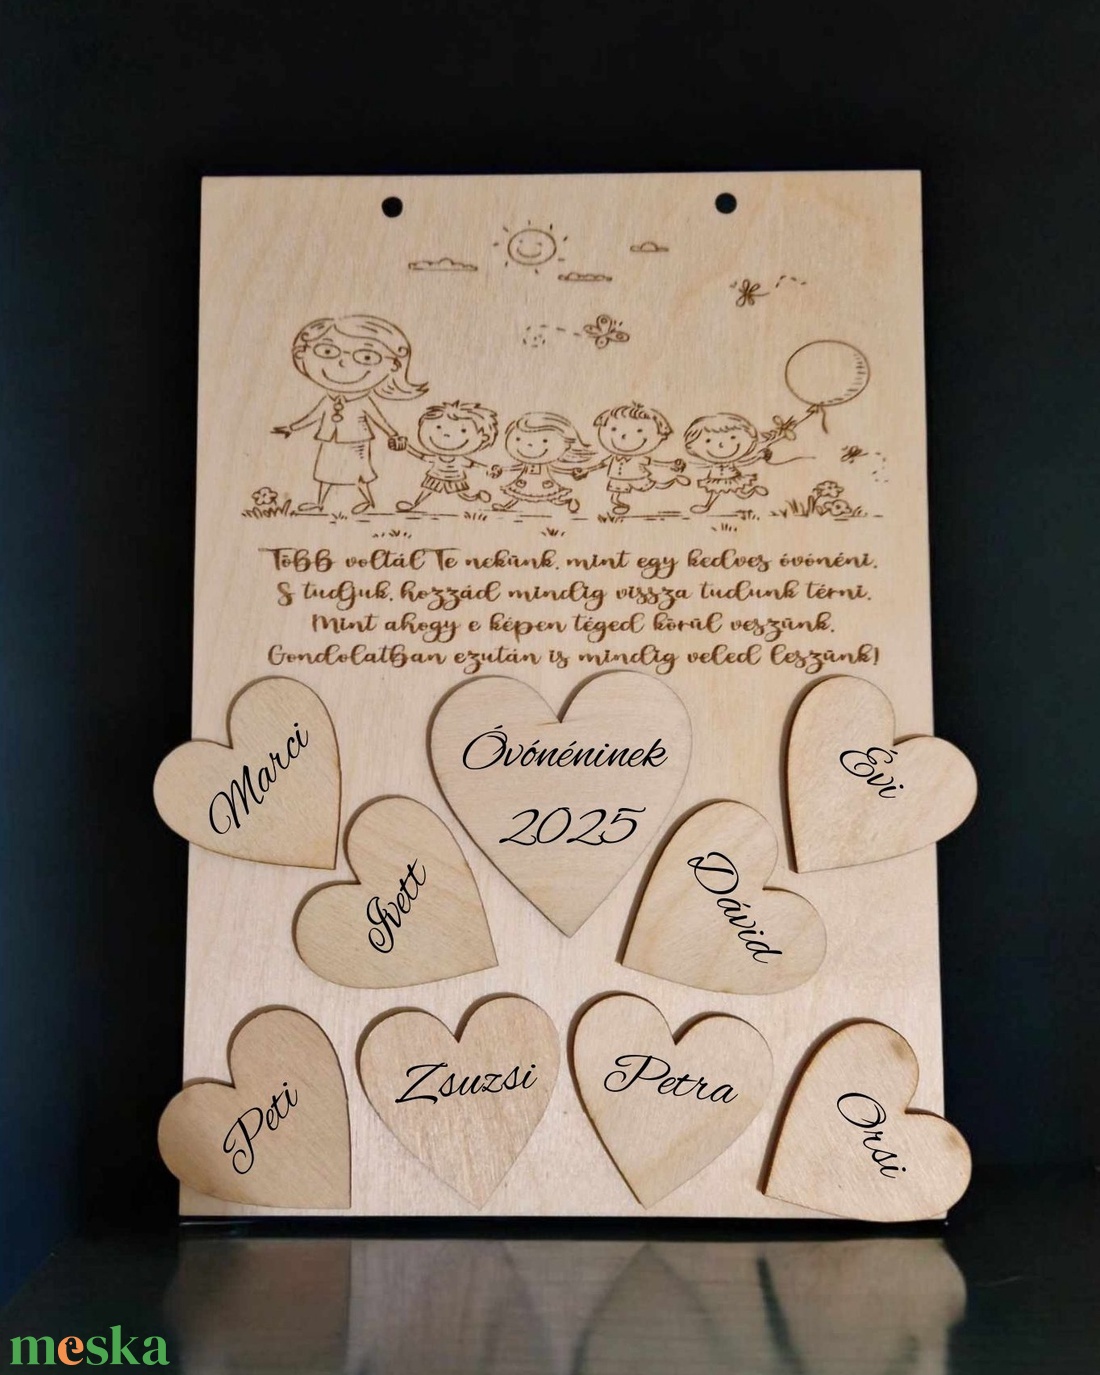 Több voltál Te nekünk, mint egy kedves óvónéni,
S tudjuk, hozzád mindig vissza tudunk térni.
Mint ahogy e képen téged körül veszünk,
Gondolatban ezután is mindig veled leszünk!
Marci
Óvónéninek
2025
Évi
Ivett
Dávid
Peti
Zsuzsi
Petra
Orsi
meska